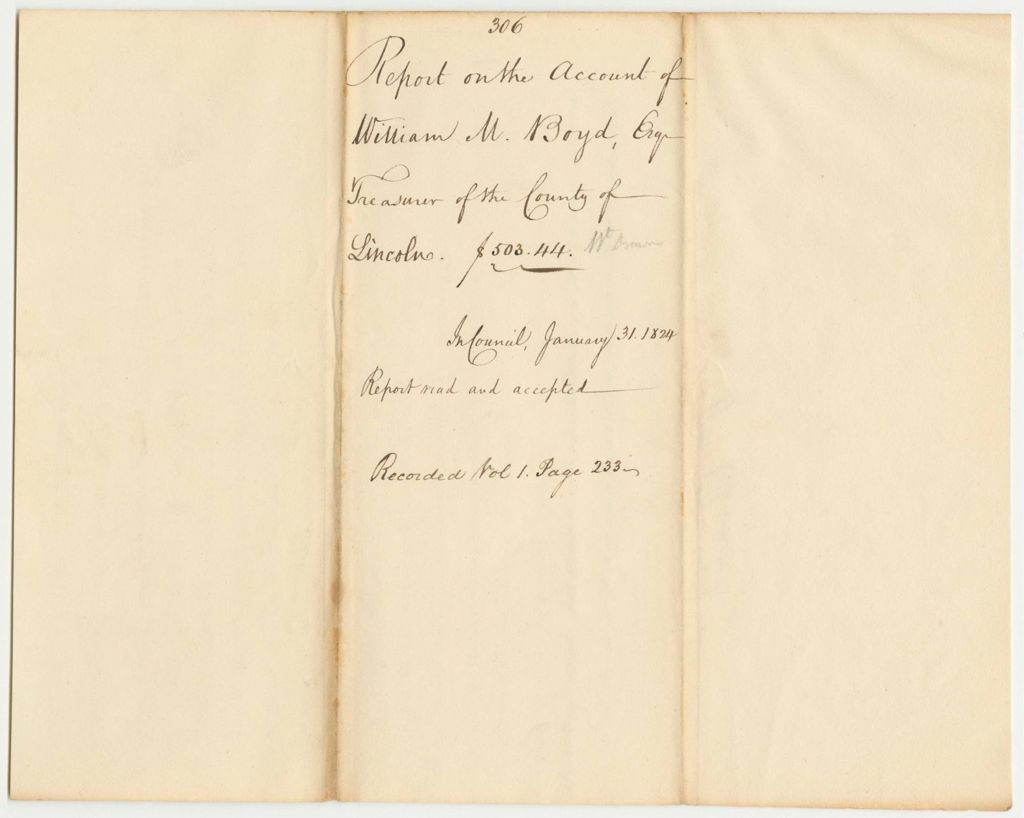 306
Report on the Account of
William M. Boyd, Esqr
Treasurer of the County of
Lincoln. $503.44. Wt Drawn
In Council, January 31. 1824
Report read and accepted
Recorded Vol 1. Page 233